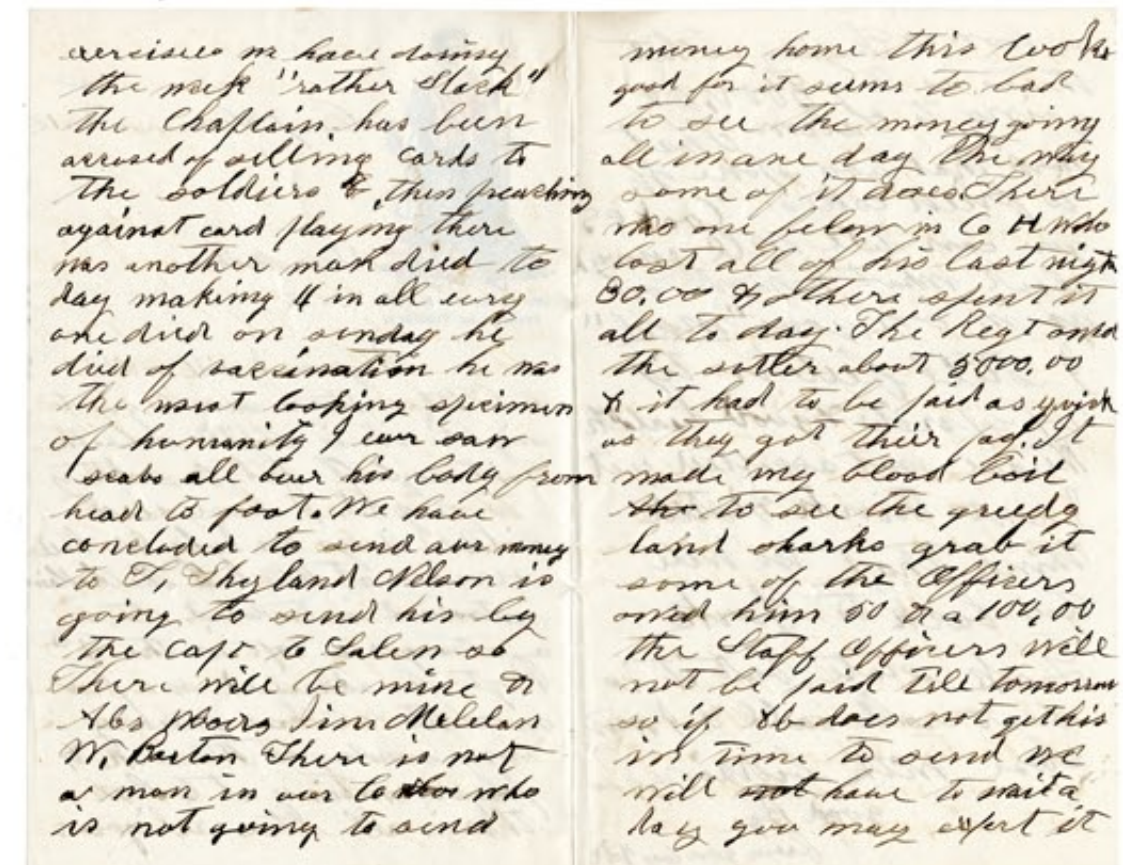 exercises we have doing
the week "rather Slack"
the Chaplain, has been
accused of selling cards to
the soldiers & then preaching
against card playing there
was another man died to
day making 4 in all every
one died on sunday he
died of vaccination he was
the worst looking specimen
of humanity I ever saw
scabs all over his body from
head to foot. We have
concluded to send our money
to T, Nelson is
going to send his by
the Capt to Salem so
There will be mine &
Abs Jim
W, Barton There is not
a man in our Co who
is not going to send
money home this looks
good for it seems to bad
to see the money going
all in one day the way
some of it does. There
was one felow in Co H who
lost all of his last night
30.00 & others spent it
all to day. The Regt owed
the sutler about 5000,00
& it had to be paid as quick
as they got their pay. It
made my blood boil
to see the greedy
land sharks grab it
some of the Officers
owed him 50 & a 100,00
the Staff Officers will
not be paid till tomorrow
so if Ab does not get his
in time to send we
will have to wait a
day you may expect it